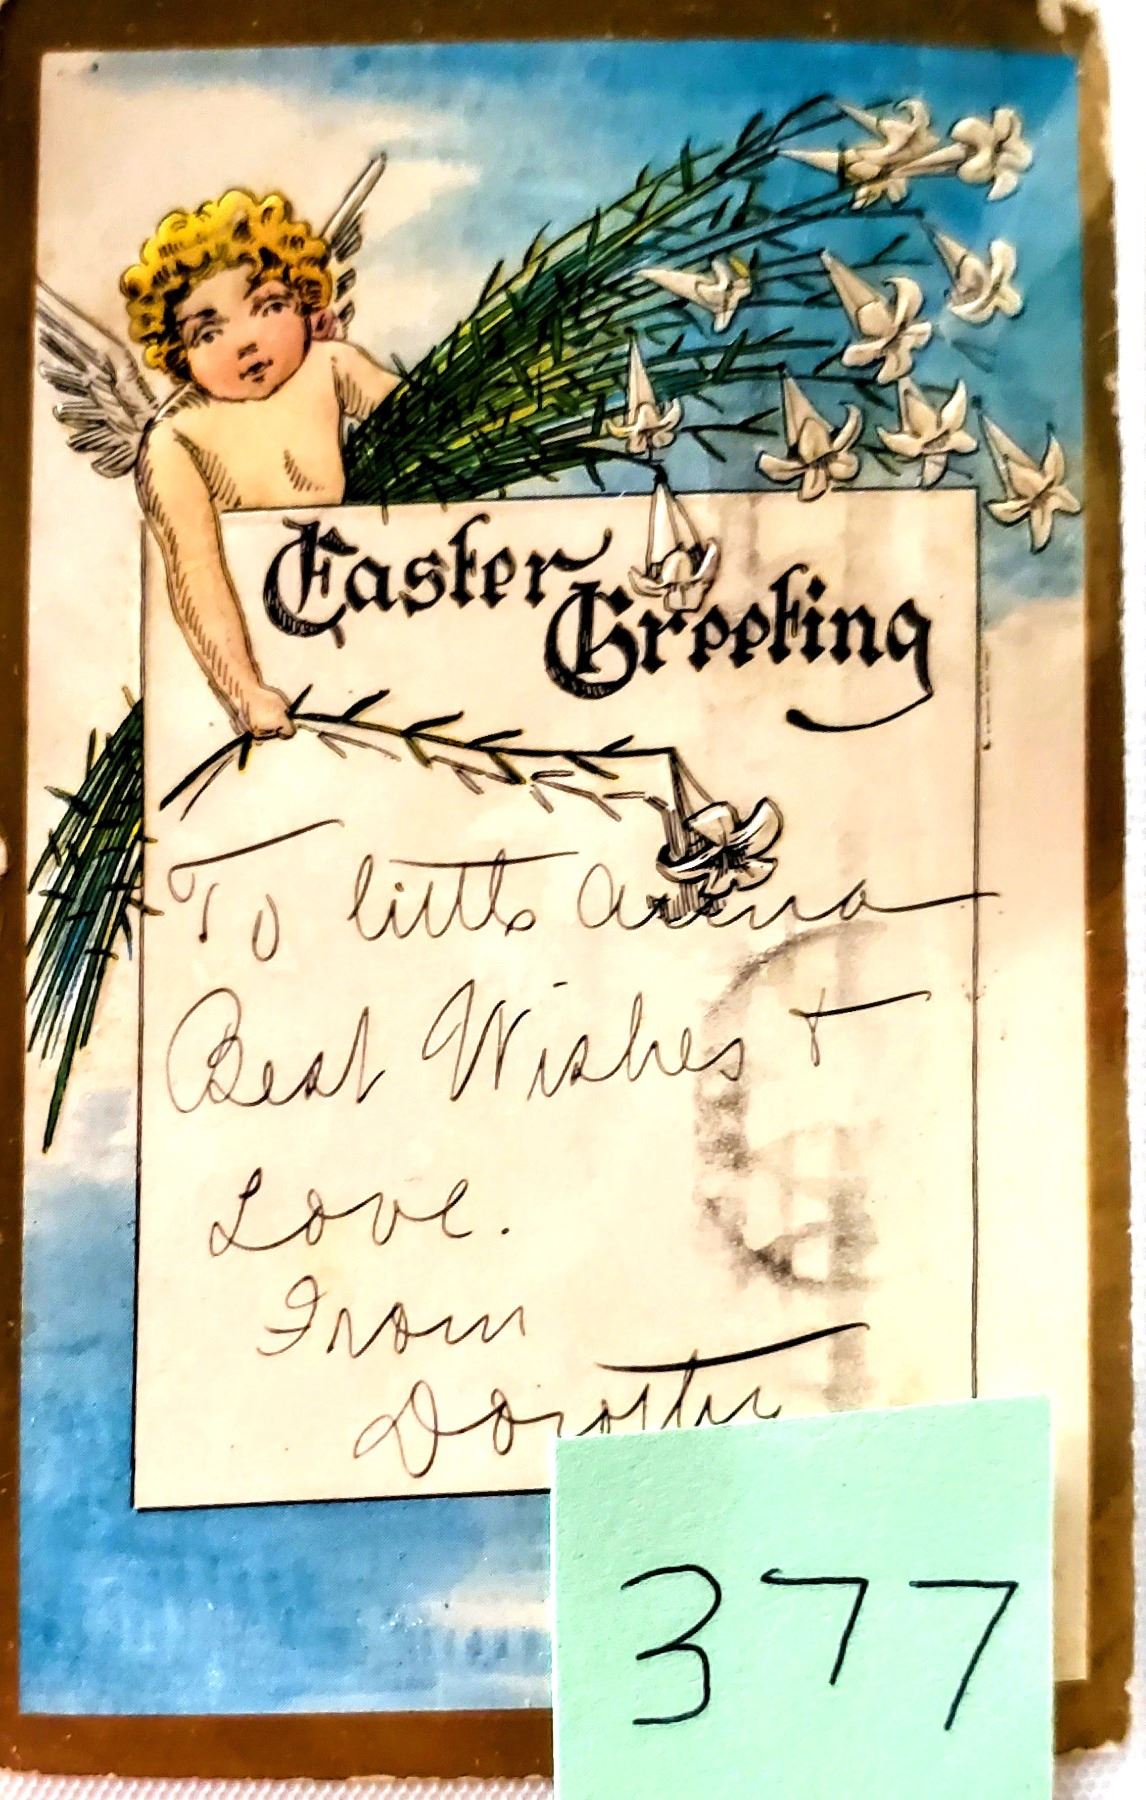 Easter
Greeting
To little
Best Wishes &
Love.
From
377